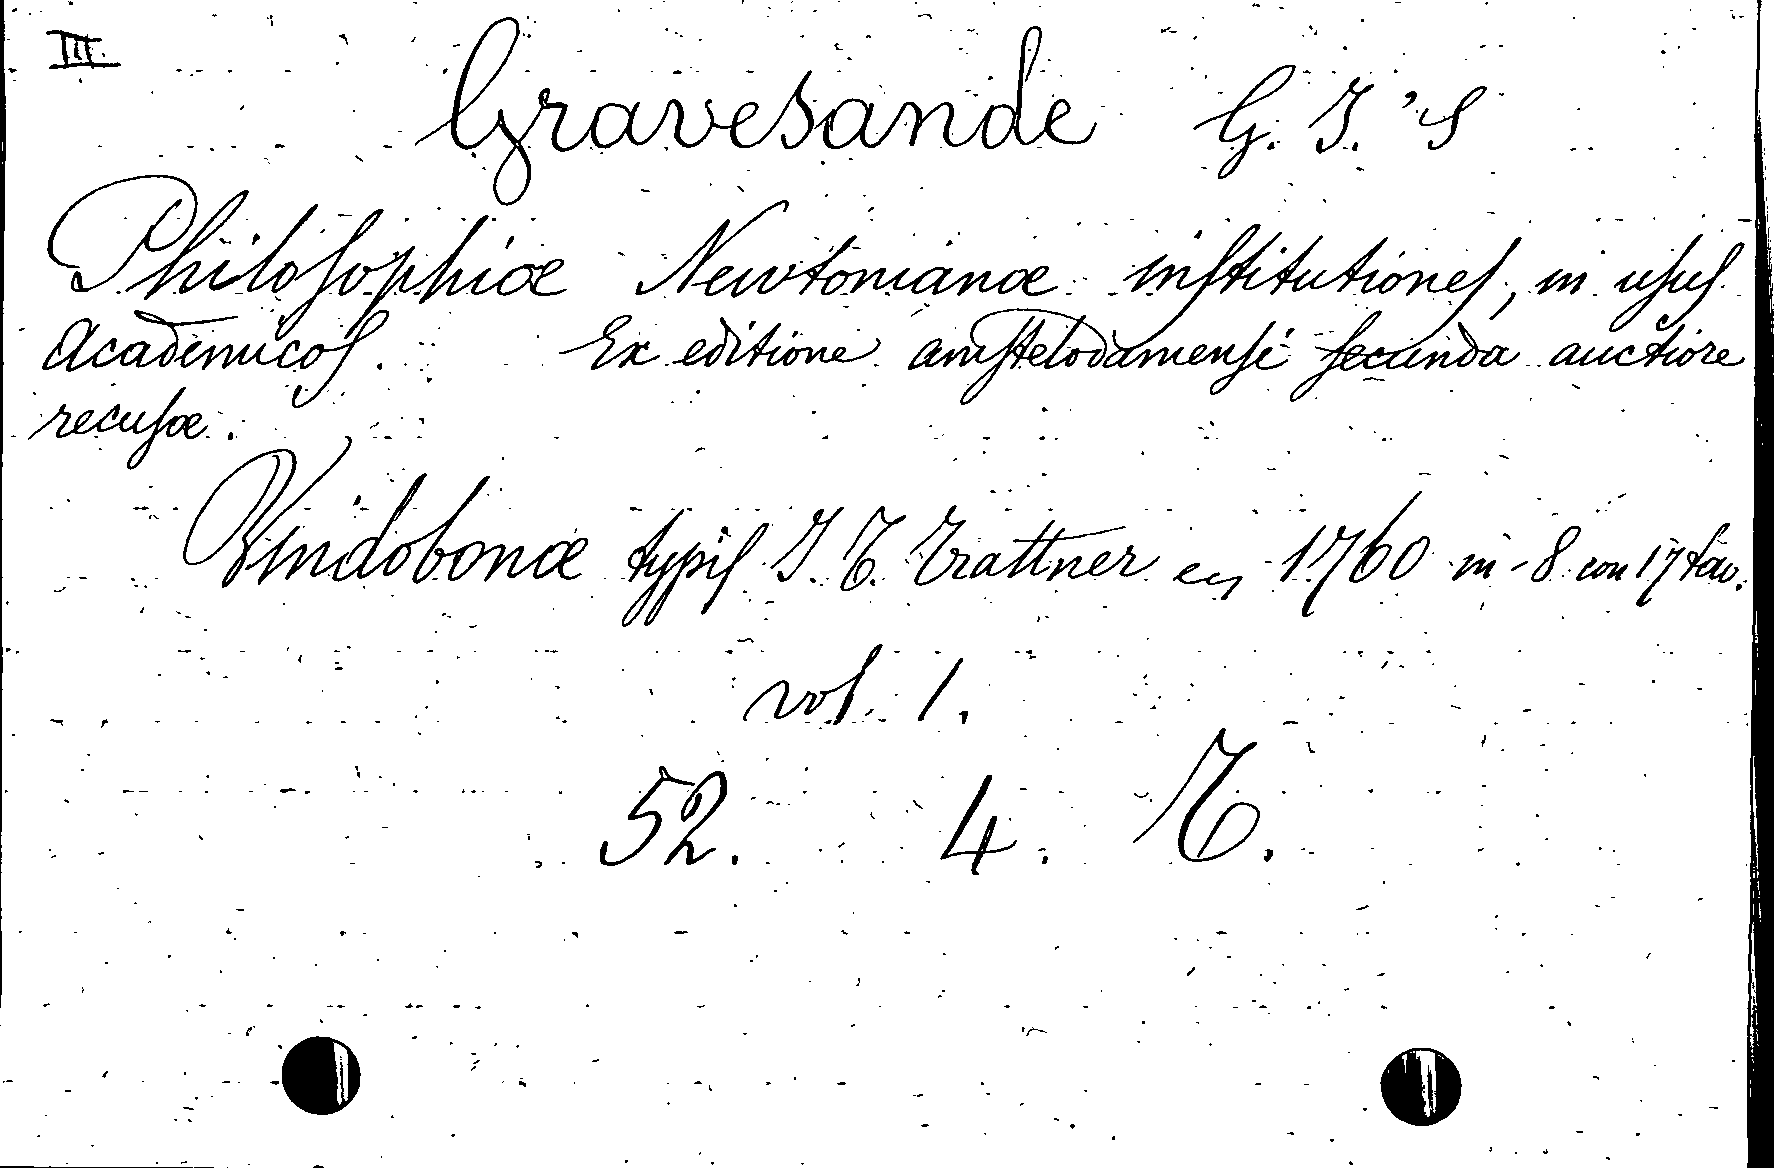 III.
Gravesande G. J. 's
Philosophiæ Newtonianæ institutiones, in usus
Academicos. Ex editione amstelodamensi secunda auctiore
recusæ.
Vindobonæ typis J. T. Trattner 1760 in-8 con 17 tav.
vol. 1.
52. 4. T.